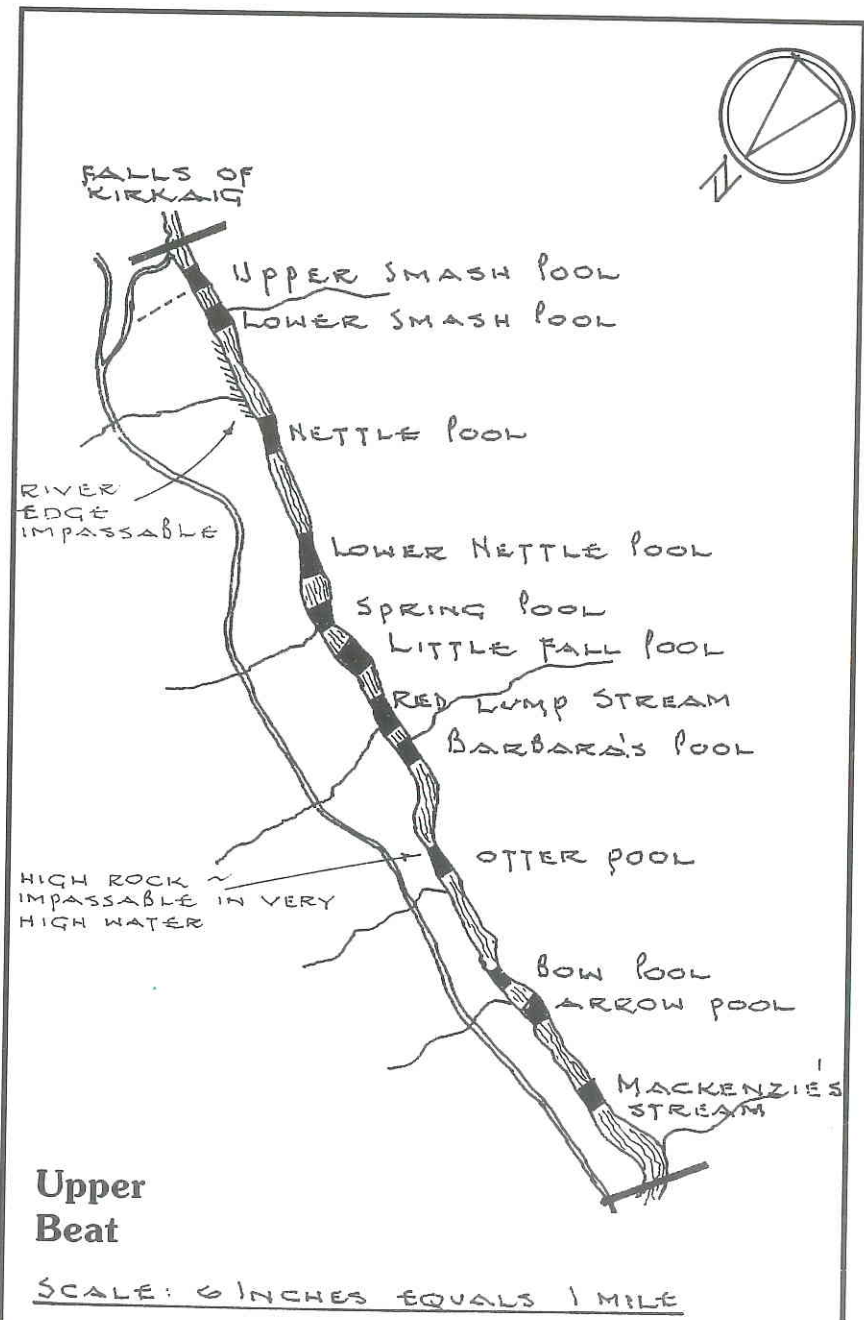 N
FALLS OF
KIRKAIG
UPPER SMASH POOL
LOWER SMASH POOL
NETTLE POOL
RIVER
EDGE
IMPASSABLE
LOWER NETTLE POOL
SPRING POOL
LITTLE FALL POOL
RED LUMP STREAM
BARBARA'S POOL
OTTER POOL
HIGH ROCK ~
IMPASSABLE IN VERY
HIGH WATER
BOW POOL
ARROW POOL
MACKENZIE'S
STREAM
Upper
Beat
SCALE: 6 INCHES EQUALS 1 MILE